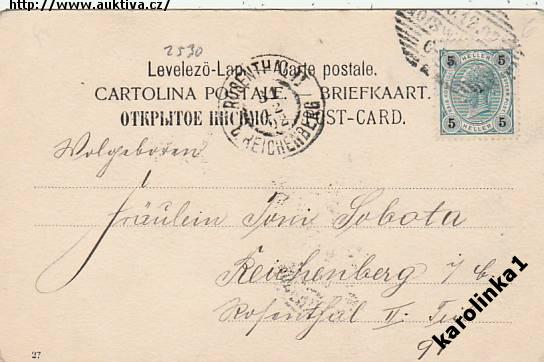 http://www.auktiva.cz/
2530
Levelező-Lap. Carte postale.
CARTOLINA POSTALE. BRIEFKAART.
ОТКРЫТОЕ ПИСЬМО. POST-CARD.
ROSENTHAL
REICHENBERG
5 HELLER 5
5 HELLER 5
Wolgeboren
Fräulein Toni Sobota
Reichenberg i/b
Rosenthal II.
27
karolinka1